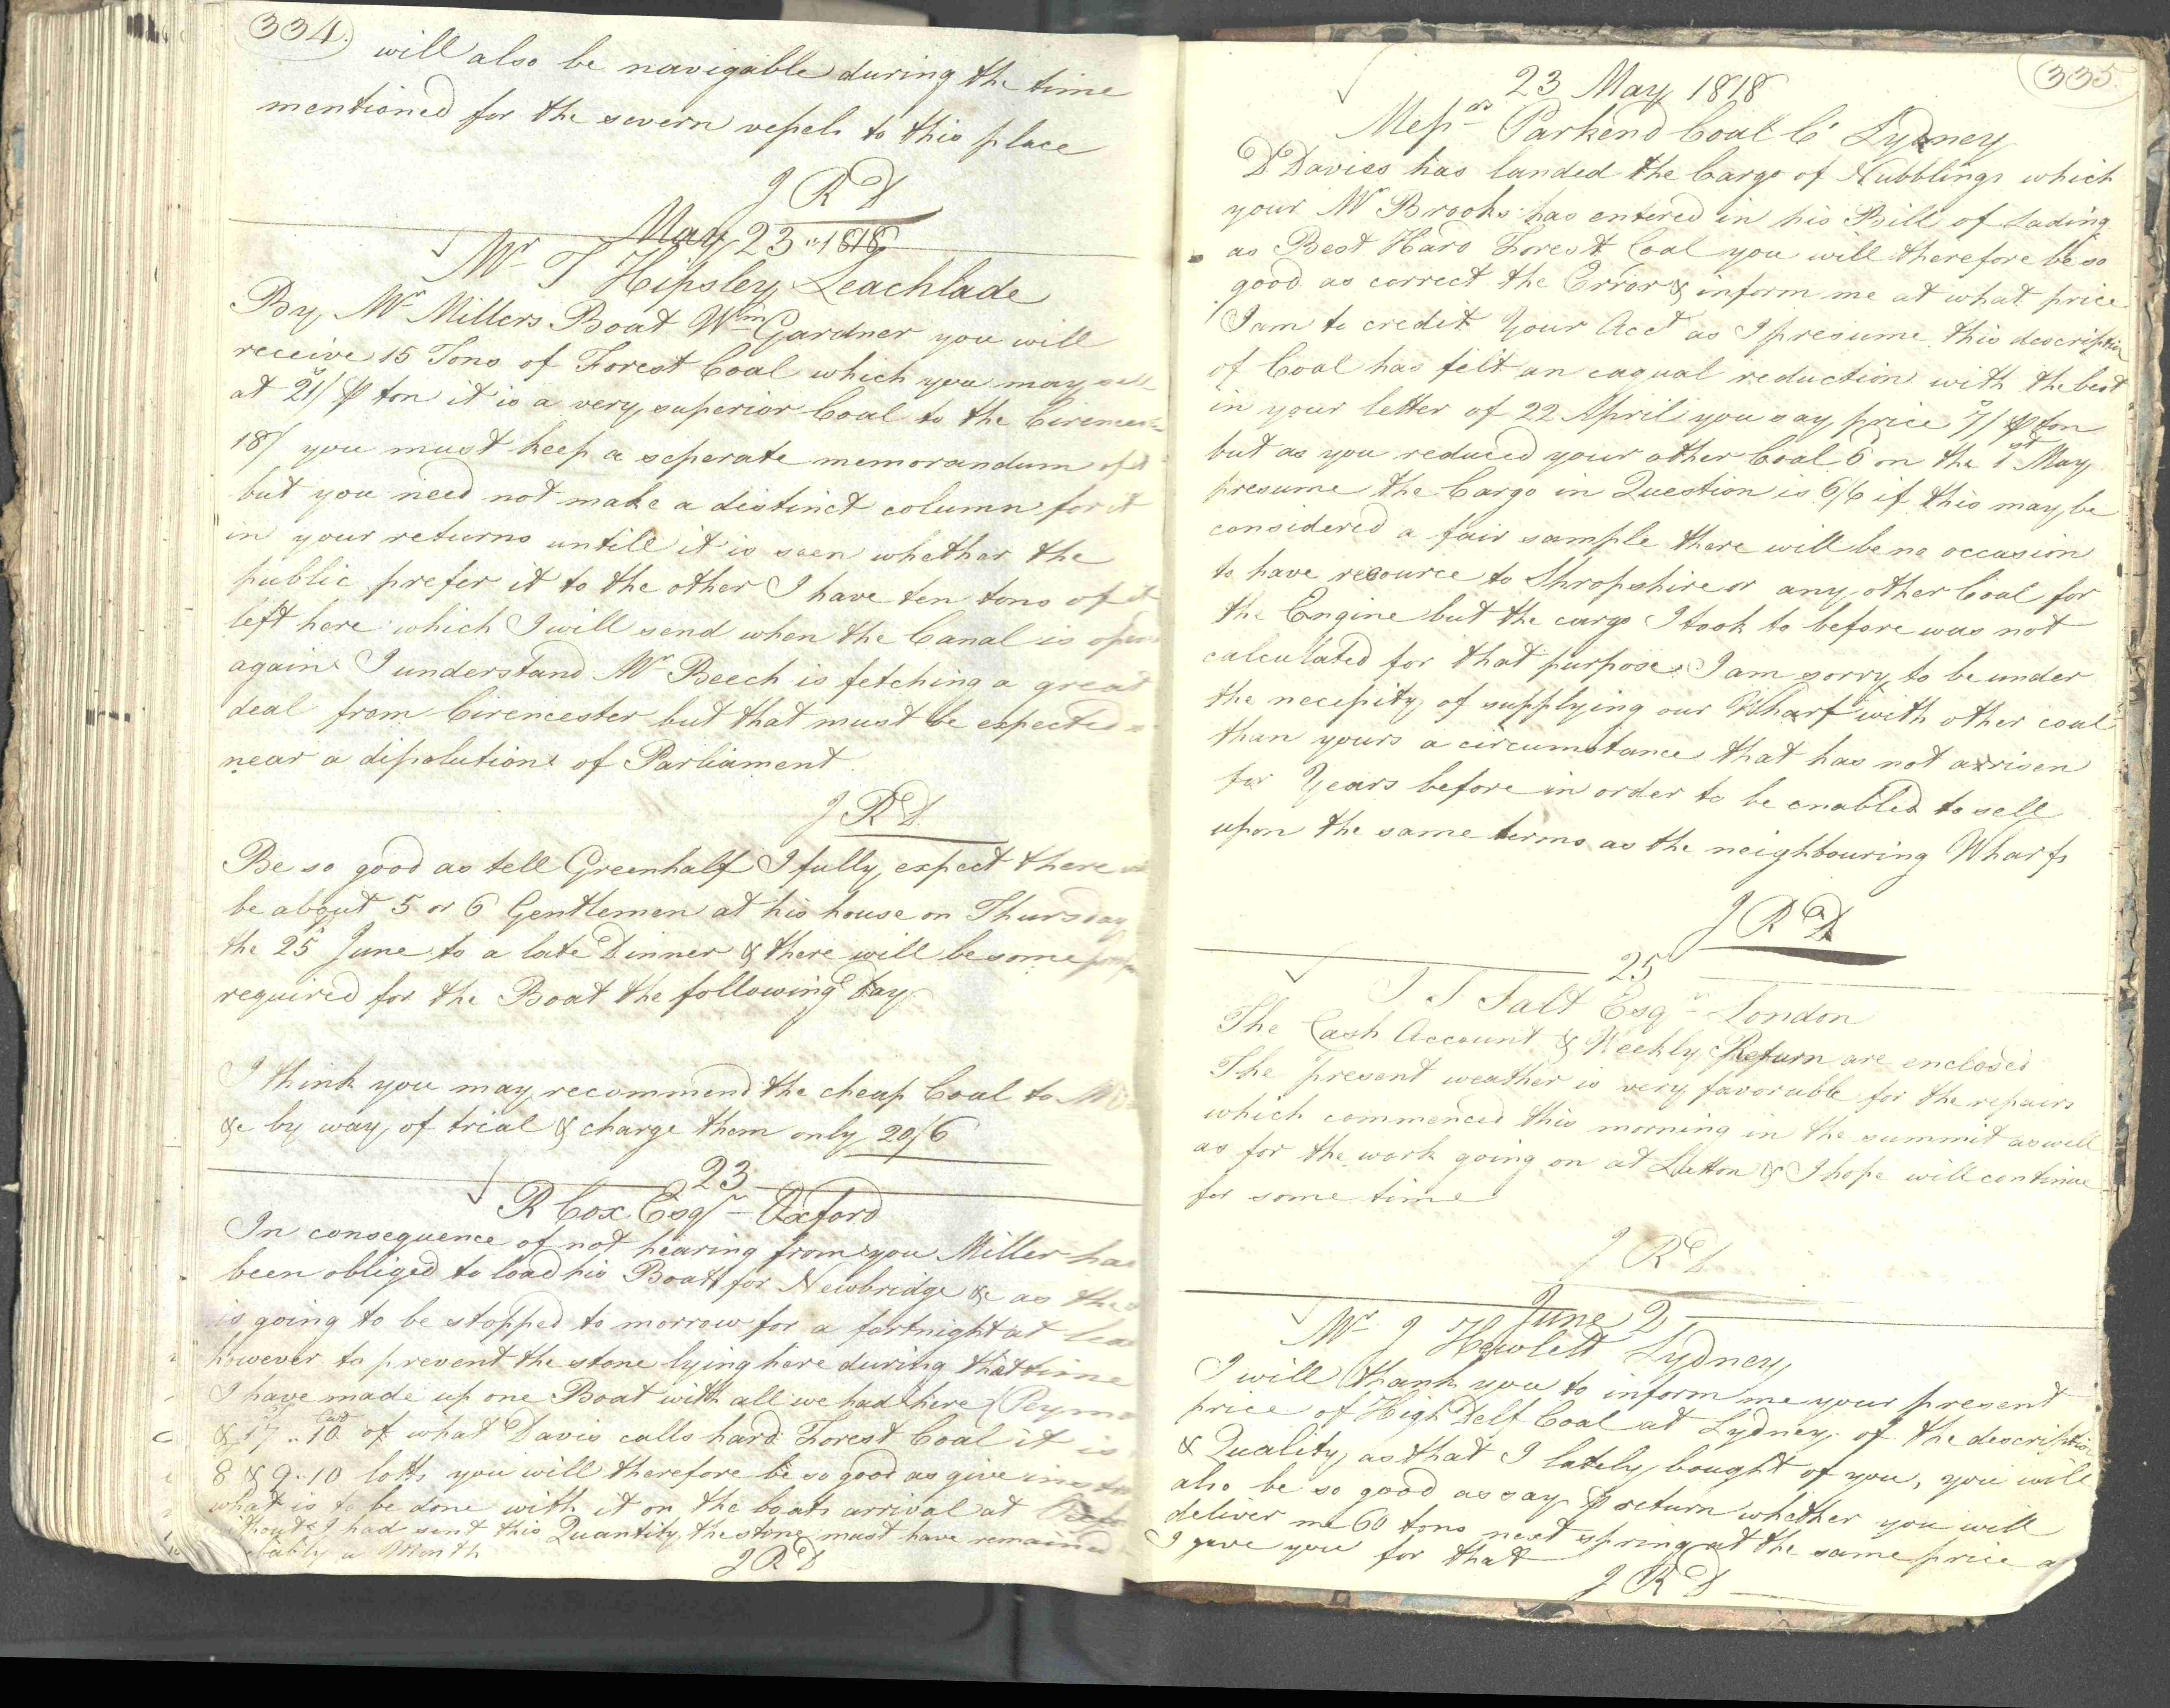 334.
will also be navigable during the time
mentioned for the severn vessels to this place
J R D
May 23 1818
Mr T Hipsley Leachlade
By Mr Millers Boat Wm Gardner you will
receive 15 Tons of Forest Coal which you may sell
at 21/ ⅌ ton it is a very superior Coal to the
18/ you must keep a seperate memorandum of it
but you need not make a distinct column for it
in your returns untill it is seen whether the
public prefer it to the other I have ten tons of it
left here which I will send when the Canal is open
again I understand Mr Beech is fetching a great
deal from Cirencester but that must be expected
near a dissolution of Parliament
J R D
Be so good as tell Greenhalf I fully expect there
be about 5 or 6 Gentlemen at his house on Thursday
the 25 June to a late Dinner & there will be some
required for the Boat the following Day
I think you may recommend the cheap Coal to
&c by way of trial & charge them only 20/6
23
R Cox Esqr Oxford
In consequence of not hearing from you Miller has
been obliged to load his Boat for Newbridge &c as the
is going to be stopped to morrow for a fortnight at
however to prevent the stone lying here during that time
I have made up one Boat with all we had here
& 17 .. 10 Cwt of what Davis calls hard Forest Coal it is
8 & 9..10 lotts you will therefore be so good as give
what is to be done with it on the boats arrival at
I had sent this Quantity the stone must have remained
a Month
J R D
335.
23 May 1818
Messrs Parkend Coal Co Lydney
D Davies has landed the Cargo of Nubblings which
your Mr Brooks has entered in his Bill of Lading
as Best Hard Forest Coal you will therefore be so
good as correct the Error & inform me at what price
I am to credit Your Acct as I presume this description
of Coal has felt an eaqual reduction with the best
in your letter of 22 April you say price 7/ ⅌ ton
but as you reduced your other Coal 6d on the 1st May
presume the Cargo in Question is 6/6 if this may be
considered a fair sample there will be no occasion
to have resource to Shropshire or any other Coal for
the Engine but the cargo I took to before was not
calculated for that purpose I am sorry to be under
the necessity of supplying our Wharf with other coal
than yours a circumstance that has not arisen
for Years before in order to be enabled to sell
upon the same terms as the neighbouring Wharfs
J R D
25
J T Salt Esqr London
The Cash Account & Weekly Return are enclosed
The present weather is very favorable for the repairs
which commenced this morning in the summit as well
as for the work going on at Dutton & I hope will continue
for some time
J R D
June 2
Mr J Hewlett Lydney
I will thank you to inform me your present
price of High Delf Coal at Lydney of the description
& Quality as that I lately bought of you, you will
also be so good as say ⅌ return whether you will
deliver me 60 tons next spring at the same price as
I gave you for that
J R D